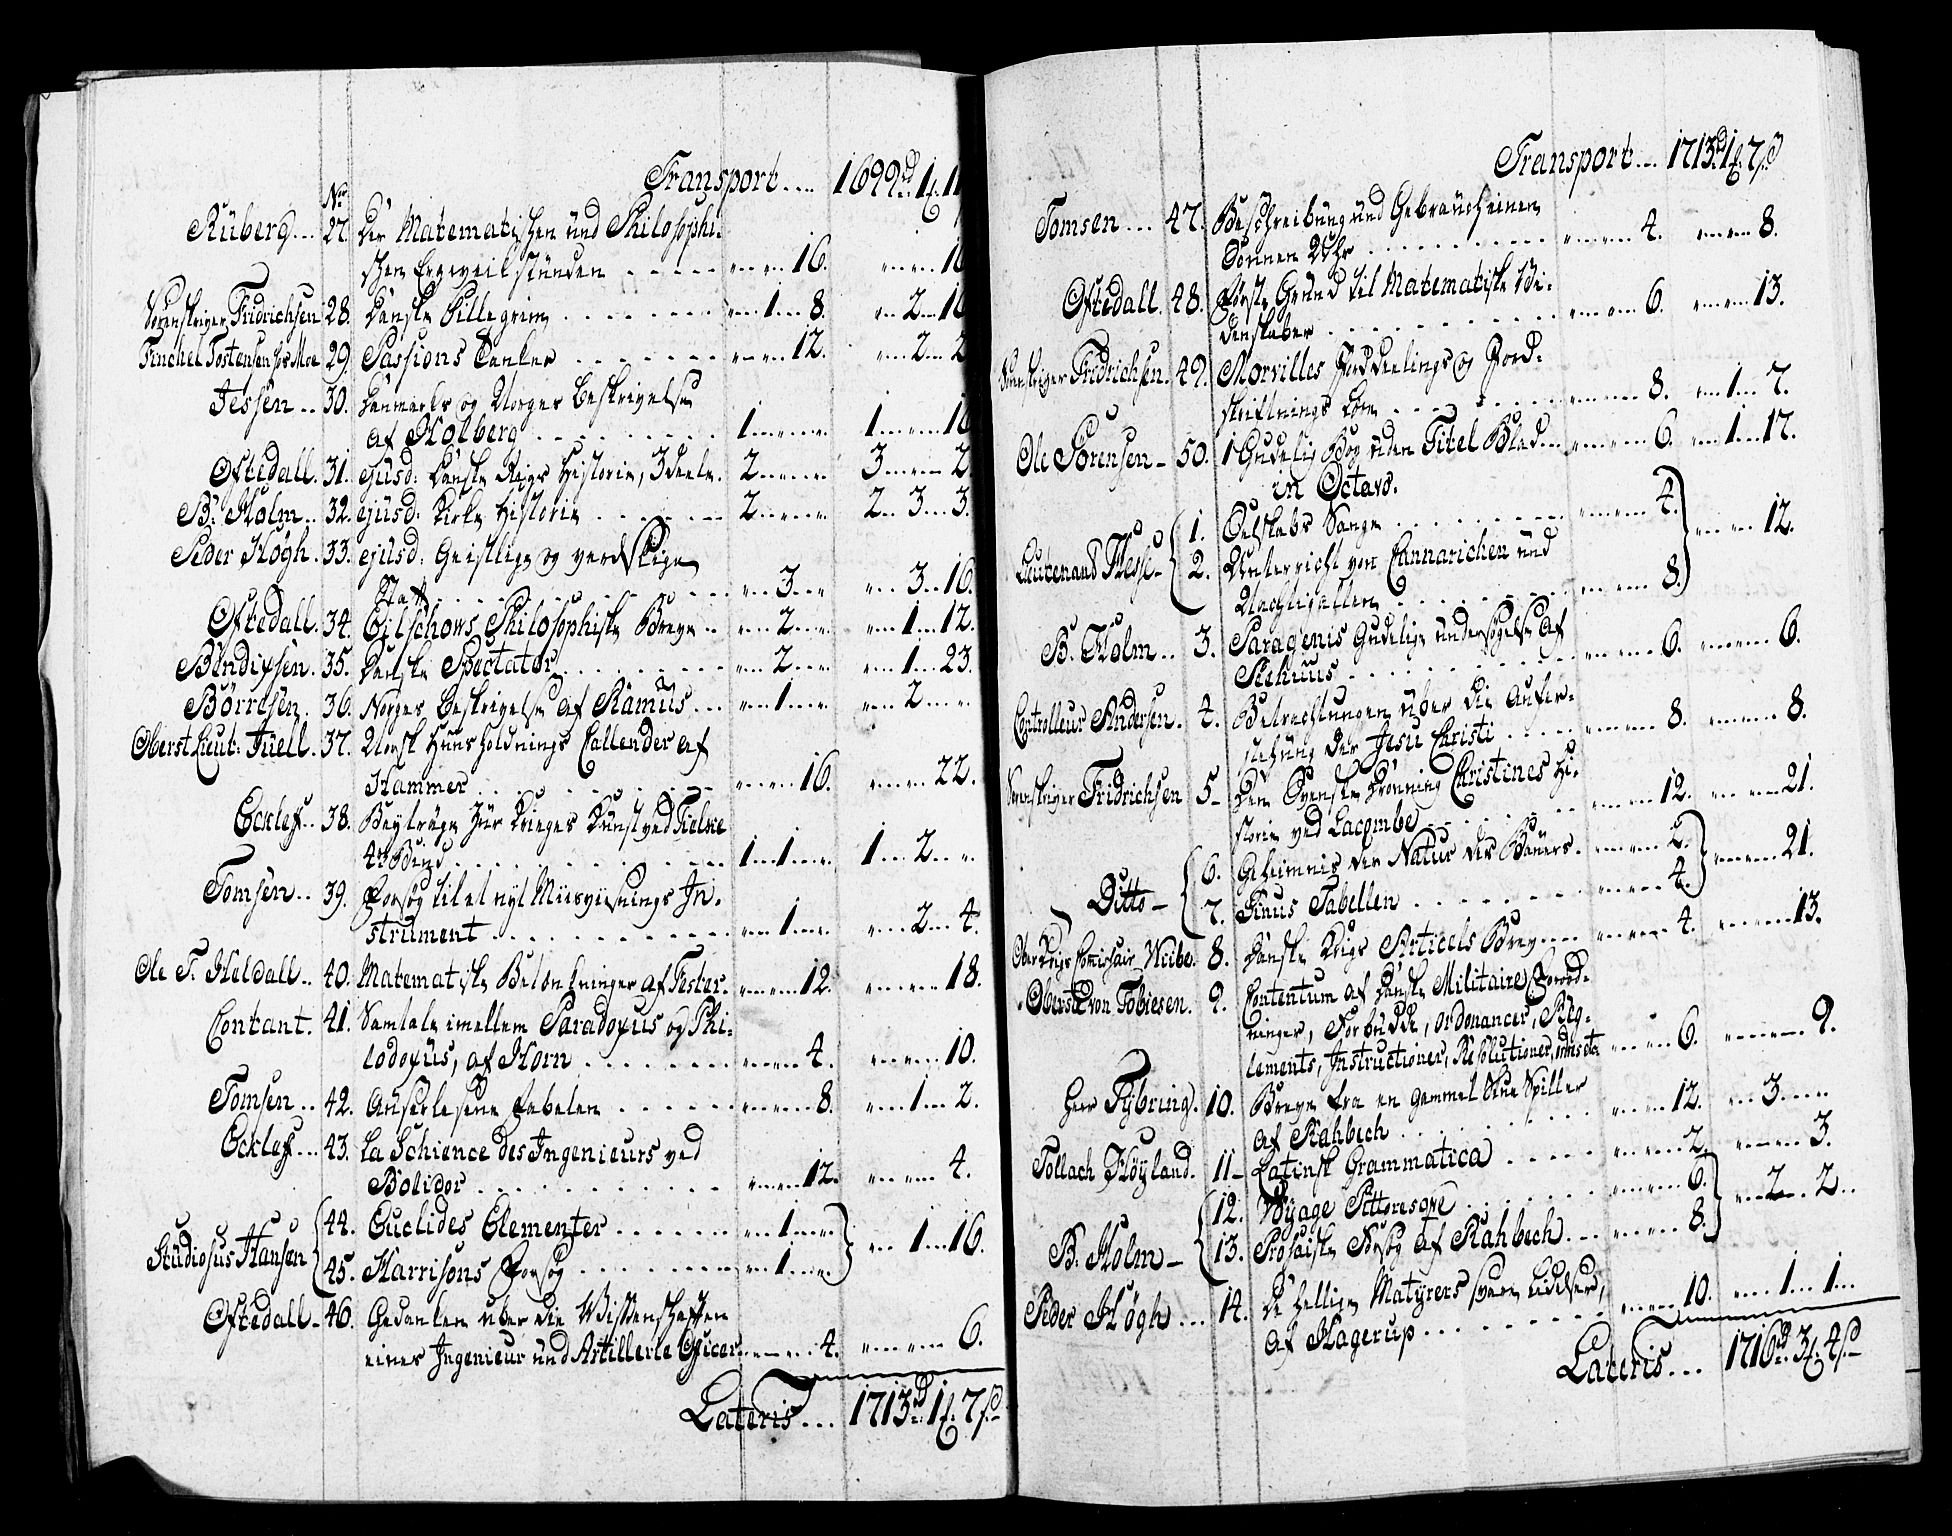 Transport.... 1699 rd 1 f. 1
No
Ruberg... 27. Der Matematischen und Philosophi-
schen Ergeveilstunden ..... 16. 16
Sorenskriver Fridrichsen 28. Danske Pillegrim ........ 1 8. 2 16
Tostensen hos Moe 29. Passions Tanker ....... 12. 2 2
Jessen .. 30. Danmarks og Norges Beskrivelse
af Holberg ......... 1 1 16
Oftedall. 31. ejusd: Danske Rigs Historie, 3 deele. 2 3 2
B: Holm.. 32. ejusd: Kirke Historie ...... 2 2 3 3.
Peder Høgh. 33. ejusd: Geistlige og verdslige
Stat ............ 3 3 16.
Oftedall. 34. Eilschows Philosophiske Breve .. 2 1 12.
Bendixsen. 35. Danske Spectator ........ 2 1 23.
Börresen. 36. Norges Beskrivelse af Ramus ... 1 2
Oberst Lieut: Juell. 37. Norsk Huusholdnings Callender af
Hammer ........... 16 22.
Eckleff.. 38. Beyträge zur Krieges Kunst ved Tielcke
4de Bind ............ 1 1 1 2
Tomsen.. 39. Forsøg til et nyt Miisviisnings In-
strument ........... 1 2 4.
Ole T. Heldall.. 40. Matematiske Betænkninger af Fester. 12. 18.
Contant. 41. Samtale imellem Paradoxus og Phi-
lodoxus, af Horn ....... 4. 10.
Tomsen.. 42. Auserlesene Fabelen ...... 8. 1 2.
Eckleff... 43. La Schience des Ingenieurs ved
Bolidor ........... 12. 4.
Studiosus Hansen 44. Euclides Elementer ...... 1
45. Harrisons Forsøg ........ 1 1 16.
Oftedall. 46. Gedanken über die Wissenschaften
eines Ingenieur und Artillerie Officer 4. 6.
Lateris... 1713 rd 1 f. 7 s
Transport... 1713 rd 1 f. 7 s
Tomsen... 47. Beschreibung und Gebrauch einen
Sonnen Uhr ......... 4. 8.
Oftedall. 48. Første Grund til Matematiske Vi-
denskaber ........... 6. 13.
Sorenskriver Fridrichsen. 49. Morvilles Jorddeelings og Jord-
skiftnings Lære ......... 8. 1 7.
Ole Sörensen 50. 1 Gudelig Bog uden Titel Blad... 6. 1 17.
in Octavo.
Lieutenand Hesse 1. Selskabs Sange ......... 4.
2. Unterricht von Cannarichen und
Nachtigallen ......... 8. 12.
B. Holm.. 3. Paragenis Gudelige undersøgelse af
Siehuus ........... 6. 6.
Controlleur Andersen. 4. Betrachtungen über die Aufer-
stehung der Jesu Christi ..... 8. 8.
Sorenskriver Fridrichsen 5. Den Svenske Dronning Christines Hi-
storie ved Lacombe ........ 12. 21.
Ditto 6. Geheimnis der Natur des Bauers. 2.
7. Sinus Tabellen ....... 4. 21.
Ober Krigs Commissair Wiibe. 8. Danske Krigs Articels Brev... 4. 13.
Oberste von Tobiesen. 9. Contentum af Danske Militaire Forord-
ninger, Forbudde, Ordonancer, Reg-
lements, Instructioner, Resolutioner, 6. 9.
Herr Fybring. 10. Breve fra en gammel Skue Spiller
af Rahbech ......... 12. 3
Tollach Höyland. 11. Latinsk Grammatica ..... 2. 3.
B. Holm 12. Woyage Pittoresqve ....... 6.
13. Prosaiske Forsøg af Rahbech ... 8. 2 2..
Peder Høgh... 14. De hellige Matyrers svare Lidelser,
af Hagerup ........ 10. 1 1
Lateris... 1716 rd 3 f. 4 s